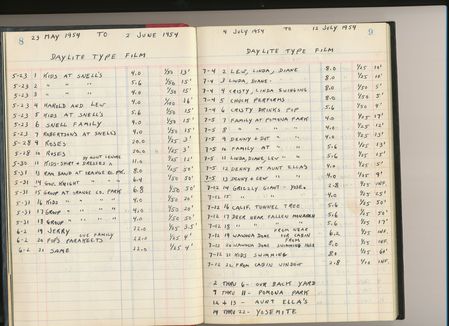 8 23 MAY 1954 TO 2 JUNE 1954
DAYLITE TYPE FILM
5-23 1 KIDS AT SNELL'S 4.0 1/50 15'
5-23 2 " " " 5.6 1/50 15'
5-23 3 " " " 4.0 1/50 15'
5-23 4 HAROLD AND LEW 4.0 1/50 16'
5-23 5 KIDS AT SNELL'S 5.6 1/50 15'
5-23 6 SNELL FAMILY 4.0 1/50 15'
5-23 7 ROBERTSON'S AT SNELLS 4.0 1/50 15'
5-28 9 ROSES 20.0 1/25 3'
5-28 10 ROSES 20.0 1/25 3'
5-30 11 KIDS-SHIRT + DRESSES BY AUNT LENORE 11.0 1/25 12'
5-31 13 RAA BAND AT ORANGE CO. PK. 8.0 1/50 50'
5-31 14 GOV. KNIGHT 6.4 1/50
5-31 15 GROUP AT ORANGE CO. PARK 6.8 1/50 50'
5-31 16 KIDS " " " " 4.0 1/50 20'
5-31 17 GROUP " " " " 4.0 1/50 50'
5-31 18 GROUP " " " " 4.0 1/50 50'
6-2 19 JERRY 22.0 1/25 3.5'
6-2 20 POP'S PARAKEETS OUR FAMILY 22.0 1/25 4'
6-2 21 SAME 22.0 1/25 4'
4 JULY 1954 TO 12 JULY 1954 9
DAYLITE TYPE FILM
7-4 2 LEW, LINDA, DIANE 8.0 1/25 10'
7-4 3 LINDA, DIANE. 8.0 1/25 10'
7-4 4 CRISTY, LINDA SWINGING 8.0 1/50 5'
7-4 5 CHUCK PERFORMS 8.0 1/50 5'
7-4 6 CRISTY DRINKS POP 5.6 1/50 4'
7-5 7 FAMILY AT POMONA PARK 4.0 1/25 17'
7-5 8 " " " " 4.0 1/25 12'
7-5 9 DENNY " " " 4.0 1/25 13'
7-5 10 FAMILY AT " " 5.6 1/25 13'
7-5 11 LINDA, DIANE, LEW " " 5.6 1/25 15'
7-5 12 DENNY AT AUNT ELLA'S 4.0 1/25
7-5 13 DENNY + LEW " " 4.0 1/25 9'
7-12 14 GRIZZLY GIANT - YOSE. 2.8 1/25 INF.
7-12 15 " " " 4.0 1/25 25'
7-12 16 CALIF. TUNNEL TREE 5.6 1/50 50'
7-12 17 DEER NEAR FALLEN MONARCH 5.6 1/50 50'
7-12 18 " " " " 5.6 1/25 17'
7-12 19 WAWONA DOME FROM NEAR OUR CABIN 6.2 1/25 INF.
7-12 20 WAWONA DOME FROM SWIMMING HOLE 8.0 1/25 INF.
7-12 21 KIDS SWIMMING 8.0 1/25 60'
7-12 22 FROM CABIN WINDOW 2.8 1/10 INF.
2 THRU 6 - OUR BACK YARD
7 THRU 11 - POMONA PARK
12 + 13 - AUNT ELLA'S
14 THRU 22 - YOSEMITE